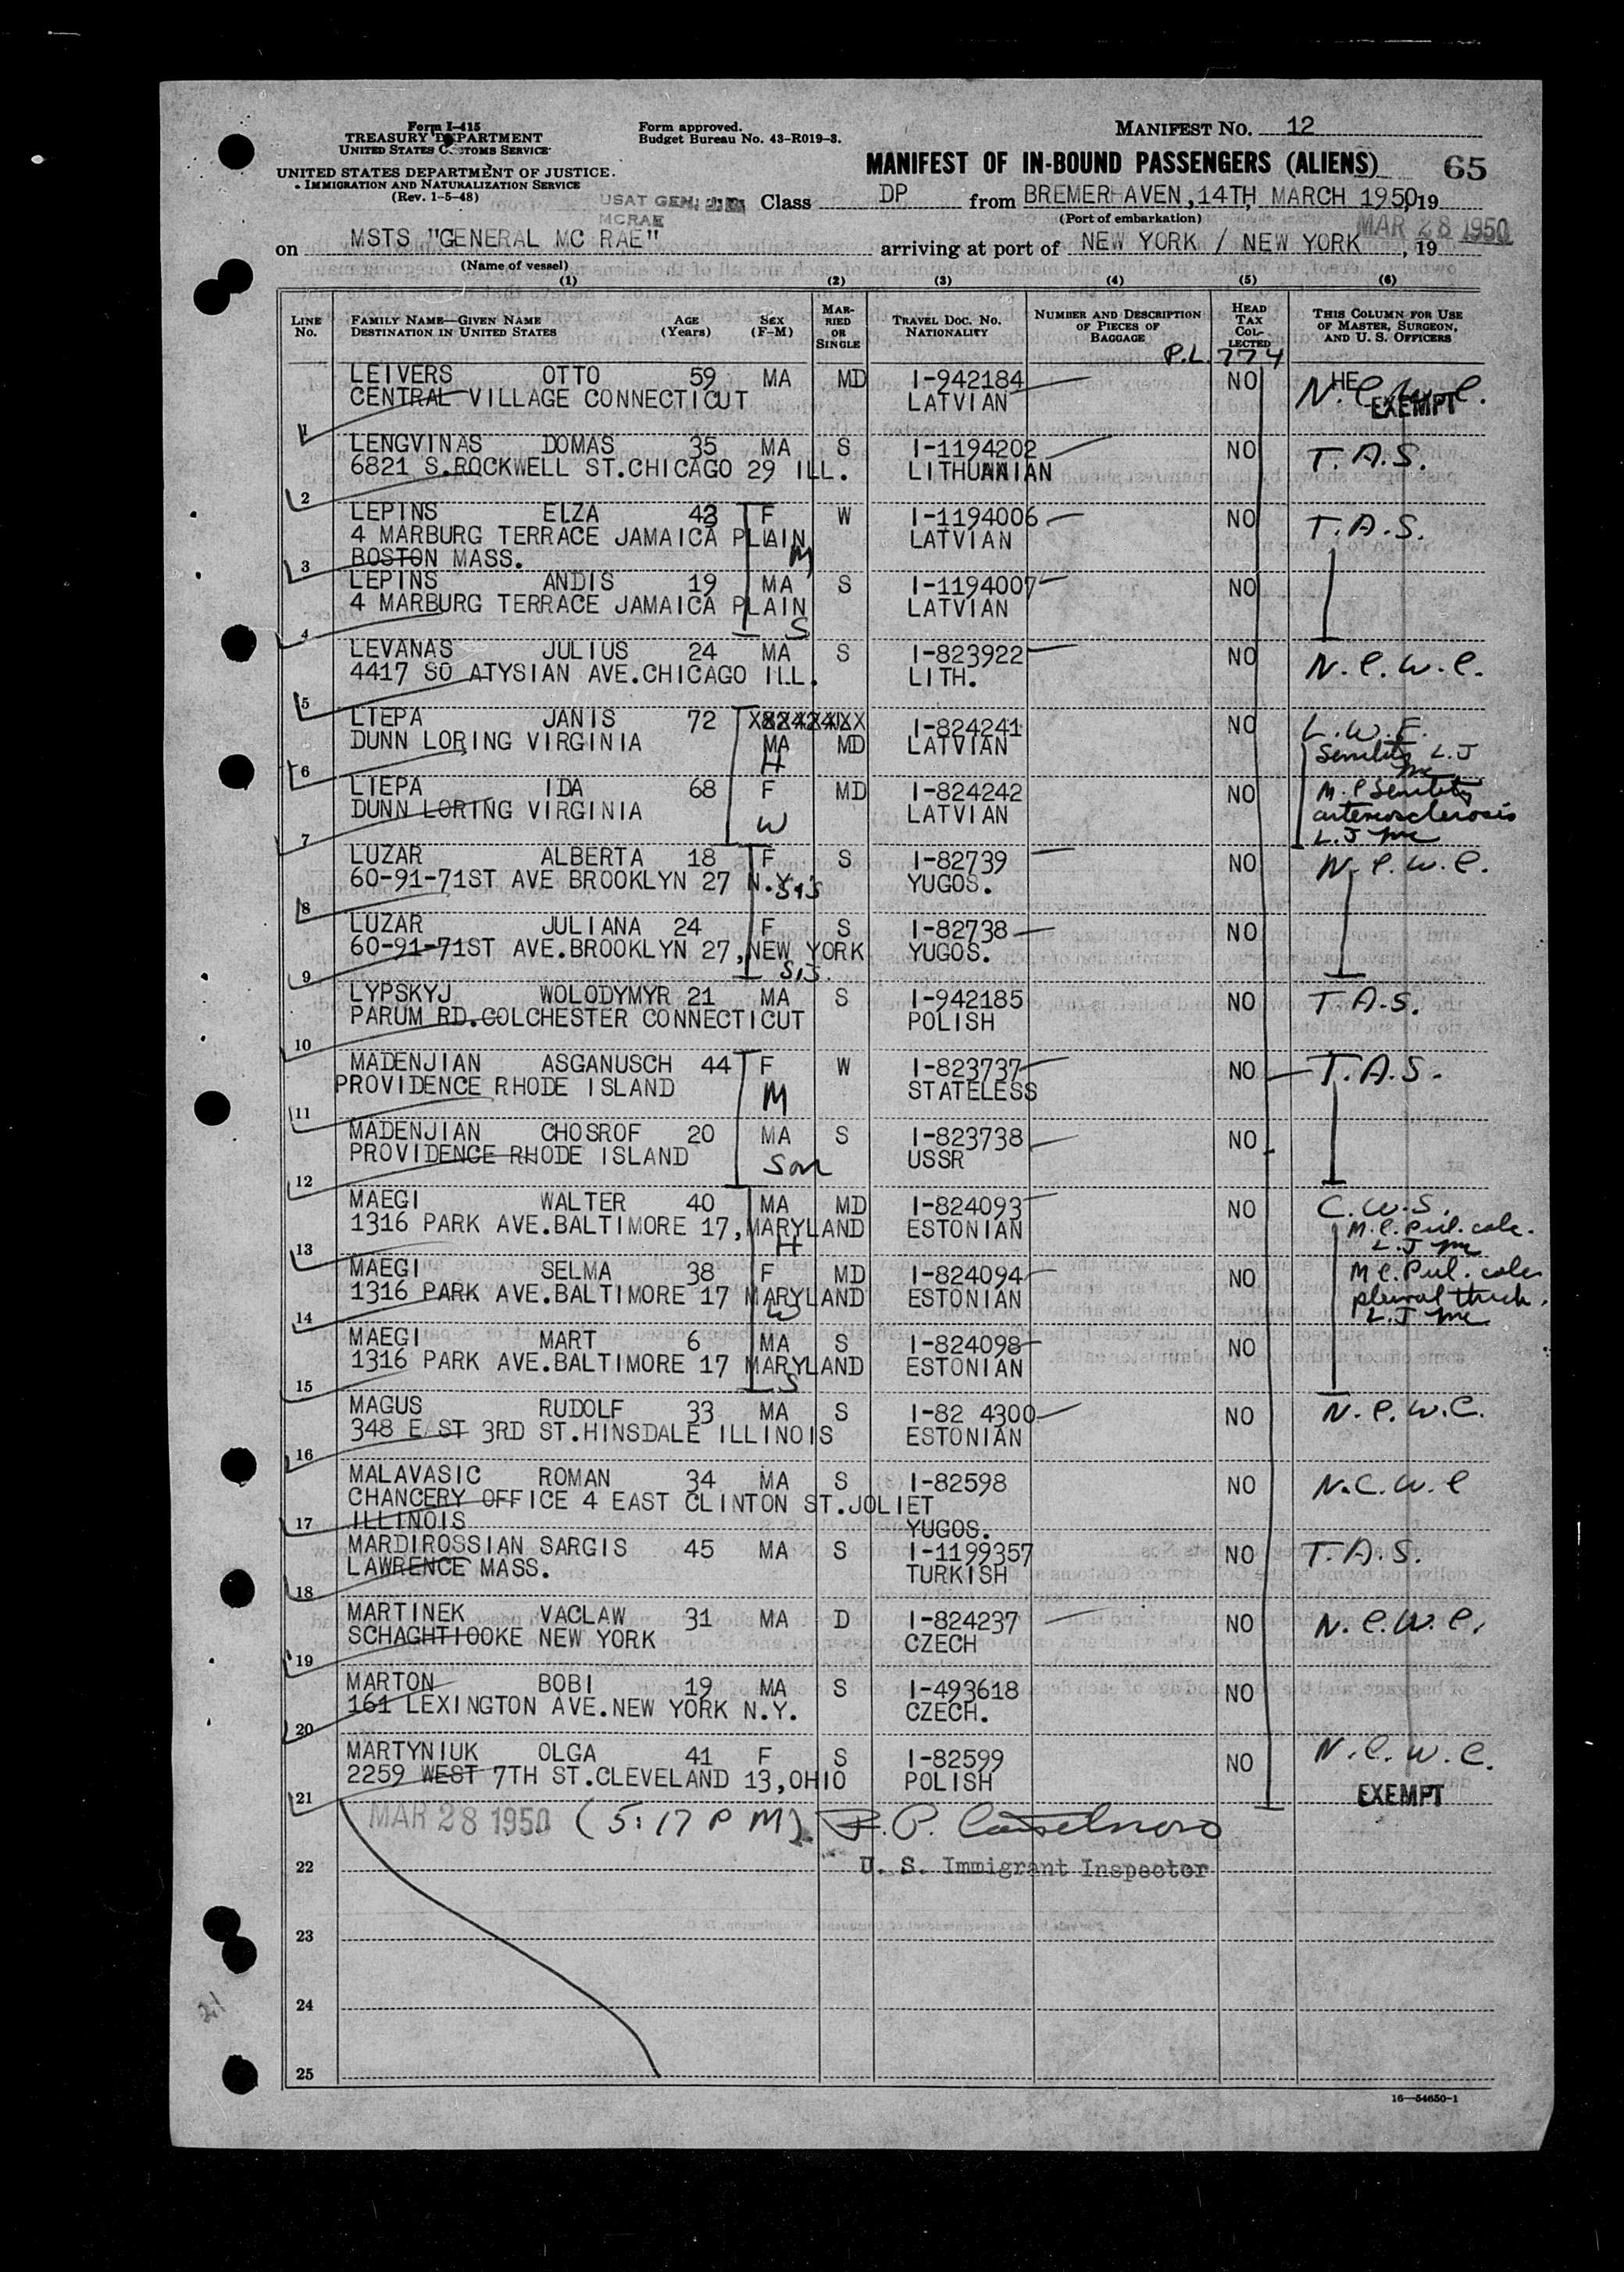 Form I-415
TREASURY DEPARTMENT
UNITED STATES CUSTOMS SERVICE
UNITED STATES DEPARTMENT OF JUSTICE.
IMMIGRATION AND NATURALIZATION SERVICE
(Rev. 1-5-48)
Form approved.
Budget Bureau No. 43-R019-3.
MANIFEST NO. 12
MANIFEST OF IN-BOUND PASSENGERS (ALIENS) 65
USAT GEN.
MCRAE
Class DP from BREMERHAVEN,14TH MARCH 1950,19
(Port of embarkation)
MAR 28 1950
on MSTS "GENERAL MC RAE" arriving at port of NEW YORK / NEW YORK, 19
(Name of vessel)
(1) (2) (3) (4) (5) (6)
LINE No. FAMILY NAME—GIVEN NAME DESTINATION IN UNITED STATES AGE (Years) SEX (F-M) MARRIED OR SINGLE TRAVEL DOC. NO. NATIONALITY NUMBER AND DESCRIPTION OF PIECES OF BAGGAGE HEAD TAX COLLECTED THIS COLUMN FOR USE OF MASTER, SURGEON, AND U. S. OFFICERS
P.L. 774
LEIVERS OTTO 59 MA MD I-942184 NO HE N.C.W.C.
CENTRAL VILLAGE CONNECTICUT LATVIAN EXEMPT
1
LENGVINAS DOMAS 35 MA S I-1194202 NO T.A.S.
6821 S.ROCKWELL ST.CHICAGO 29 ILL. LITHUANIAN
2
LEPINS ELZA 43 F W I-1194006 NO T.A.S.
4 MARBURG TERRACE JAMAICA PLAIN LATVIAN
3 BOSTON MASS. M
LEPINS ANDIS 19 MA S I-1194007 NO
4 MARBURG TERRACE JAMAICA PLAIN LATVIAN
4 S
LEVANAS JULIUS 24 MA S I-823922 NO N.C.W.C.
4417 SO ATYSIAN AVE.CHICAGO ILL. LITH.
5
LIEPA JANIS 72 I-824241 NO L.W.F.
DUNN LORING VIRGINIA MA MD LATVIAN Senility L.J
6 H
LIEPA IDA 68 F MD I-824242 NO M.C Senility
DUNN LORING VIRGINIA LATVIAN arteriosclerosis
7 W L.J
LUZAR ALBERTA 18 F S I-82739 NO N.C.W.C.
60-91-71ST AVE BROOKLYN 27 N.Y. YUGOS.
8 Sis
LUZAR JULIANA 24 F S I-82738 NO
60-91-71ST AVE.BROOKLYN 27,NEW YORK YUGOS.
9 Sis.
LYPSKYJ WOLODYMYR 21 MA S I-942185 NO T.A.S.
PARUM RD.COLCHESTER CONNECTICUT POLISH
10
MADENJIAN ASGANUSCH 44 F W I-823737 NO T.A.S.
PROVIDENCE RHODE ISLAND STATELESS
11 M
MADENJIAN CHOSROF 20 MA S I-823738 NO
PROVIDENCE RHODE ISLAND USSR
12 Son
MAEGI WALTER 40 MA MD I-824093 NO C.W.S.
1316 PARK AVE.BALTIMORE 17,MARYLAND ESTONIAN M.C. Pul. calc.
13 H L.J
MAEGI SELMA 38 F MD I-824094 NO M C. Pul. calc
1316 PARK AVE.BALTIMORE 17 MARYLAND ESTONIAN pleural thick.
14 W L.J
MAEGI MART 6 MA S I-824098 NO
1316 PARK AVE.BALTIMORE 17 MARYLAND ESTONIAN
15 S
MAGUS RUDOLF 33 MA S I-82 4300 NO N.C.W.C.
348 EAST 3RD ST.HINSDALE ILLINOIS ESTONIAN
16
MALAVASIC ROMAN 34 MA S I-82598 NO N.C.W.C
CHANCERY OFFICE 4 EAST CLINTON ST.JOLIET
17 ILLINOIS YUGOS.
MARDIROSSIAN SARGIS 45 MA S I-1199357 NO T.A.S.
LAWRENCE MASS. TURKISH
18
MARTINEK VACLAW 31 MA D I-824237 NO N.C.W.C.
SCHAGHTIOOKE NEW YORK CZECH
19
MARTON BOBI 19 MA S I-493618 NO
161 LEXINGTON AVE.NEW YORK N.Y. CZECH.
20
MARTYNIUK OLGA 41 F S I-82599 NO N.C.W.C.
2259 WEST 7TH ST.CLEVELAND 13,OHIO POLISH
21 EXEMPT
MAR 28 1950 (5:17 PM)
22 U. S. Immigrant Inspector
23
24
25
21
16—54650-1